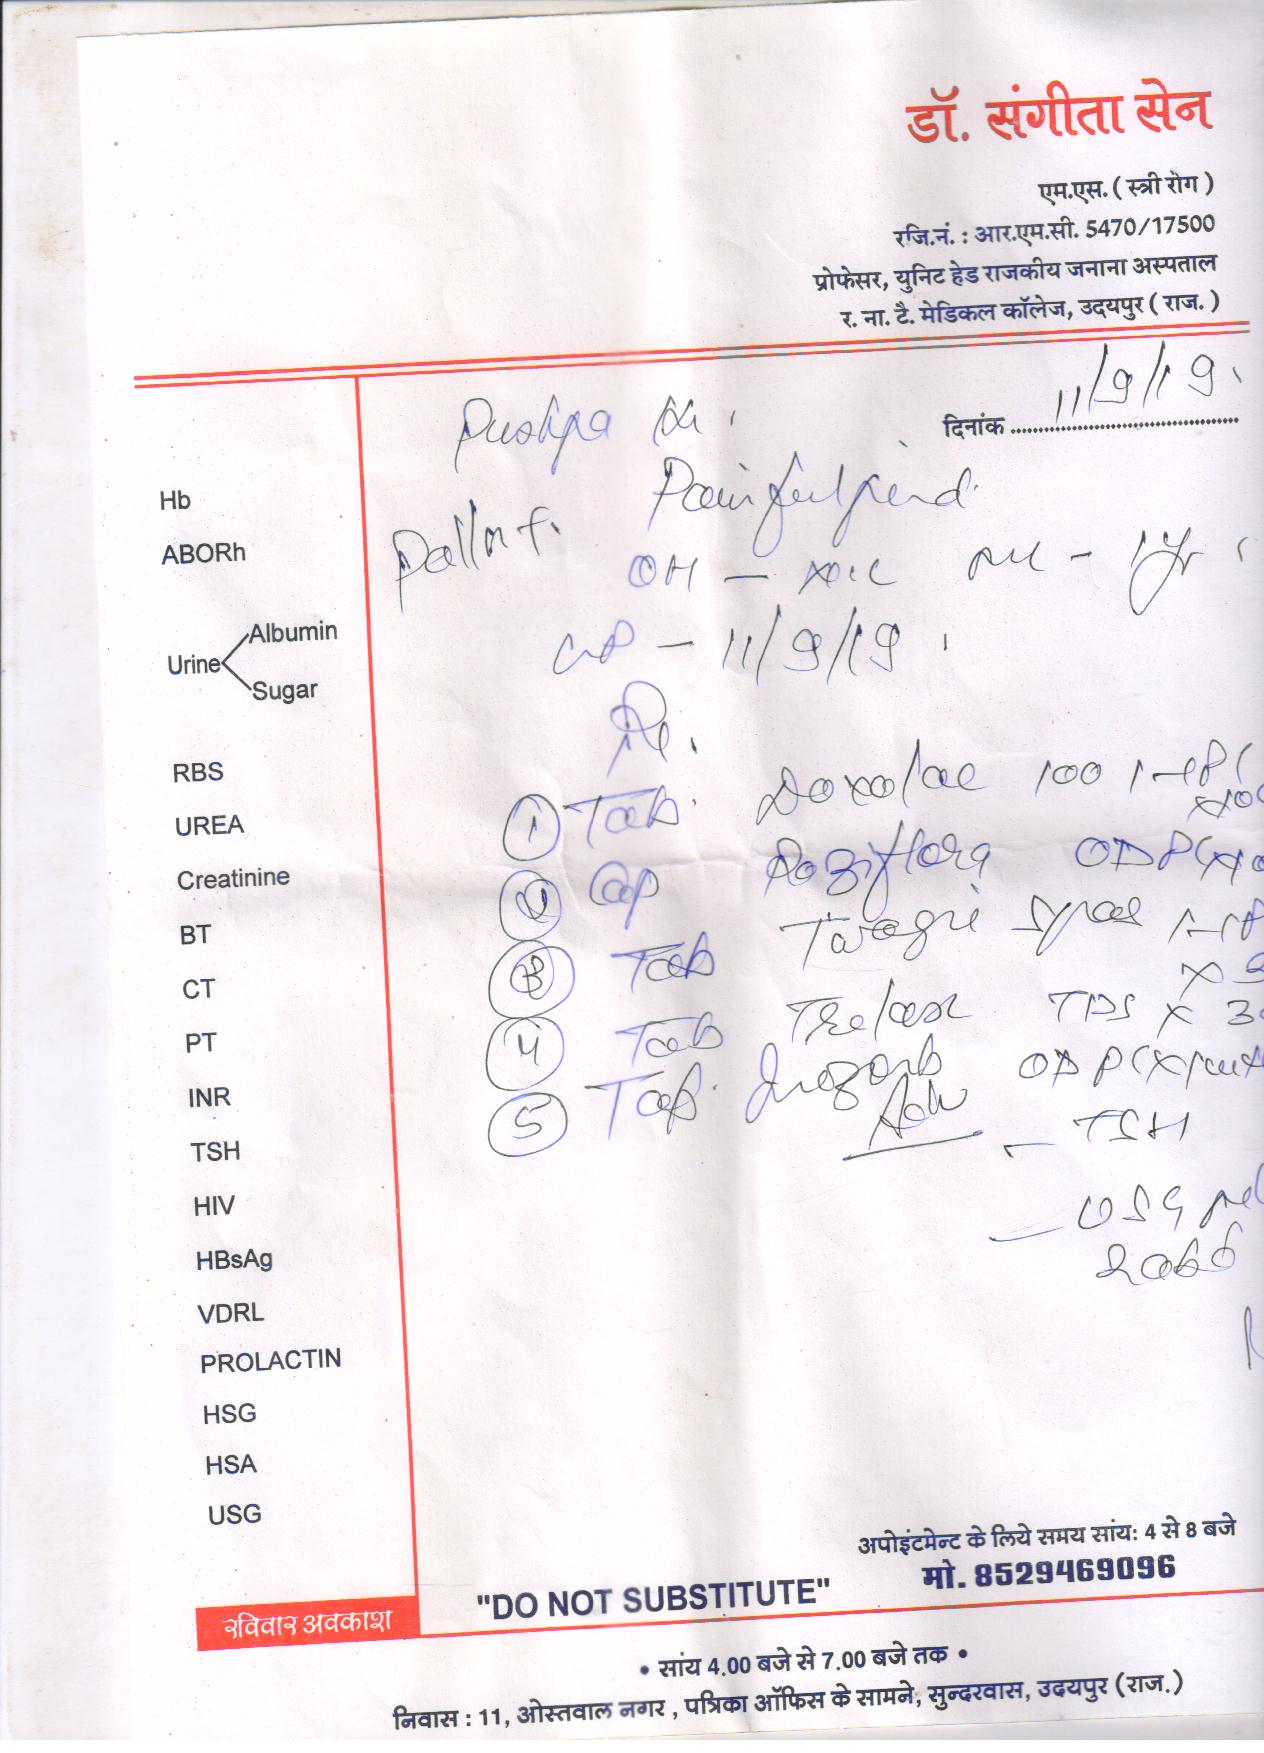 डॉ. संगीता सेन
एम.एस. ( स्त्री रोग )
रजि.नं. : आर.एम.सी. 5470/17500
प्रोफेसर, युनिट हेड राजकीय जनाना अस्पताल
र. ना. टै. मेडिकल कॉलेज, उदयपुर ( राज. )
दिनांक 11/9/19
Pushpa
Painful period
Pallor +
OH -
- 11/9/19
Rx
① Tab. 100 1-1 PC
② Cap ODPC
③ Tab spas 1-1 P
④ Tab TDS x 3
⑤ Tab. ODPC x
Adv - TSH
- USG
Hb
ABORh
Urine
Albumin
Sugar
RBS
UREA
Creatinine
BT
CT
PT
INR
TSH
HIV
HBsAg
VDRL
PROLACTIN
HSG
HSA
USG
अपोइंटमेन्ट के लिये समय सांय: 4 से 8 बजे
मो. 8529469096
"DO NOT SUBSTITUTE"
रविवार अवकाश
• सांय 4.00 बजे से 7.00 बजे तक •
निवास : 11, ओस्तवाल नगर , पत्रिका ऑफिस के सामने, सुन्दरवास, उदयपुर (राज.)